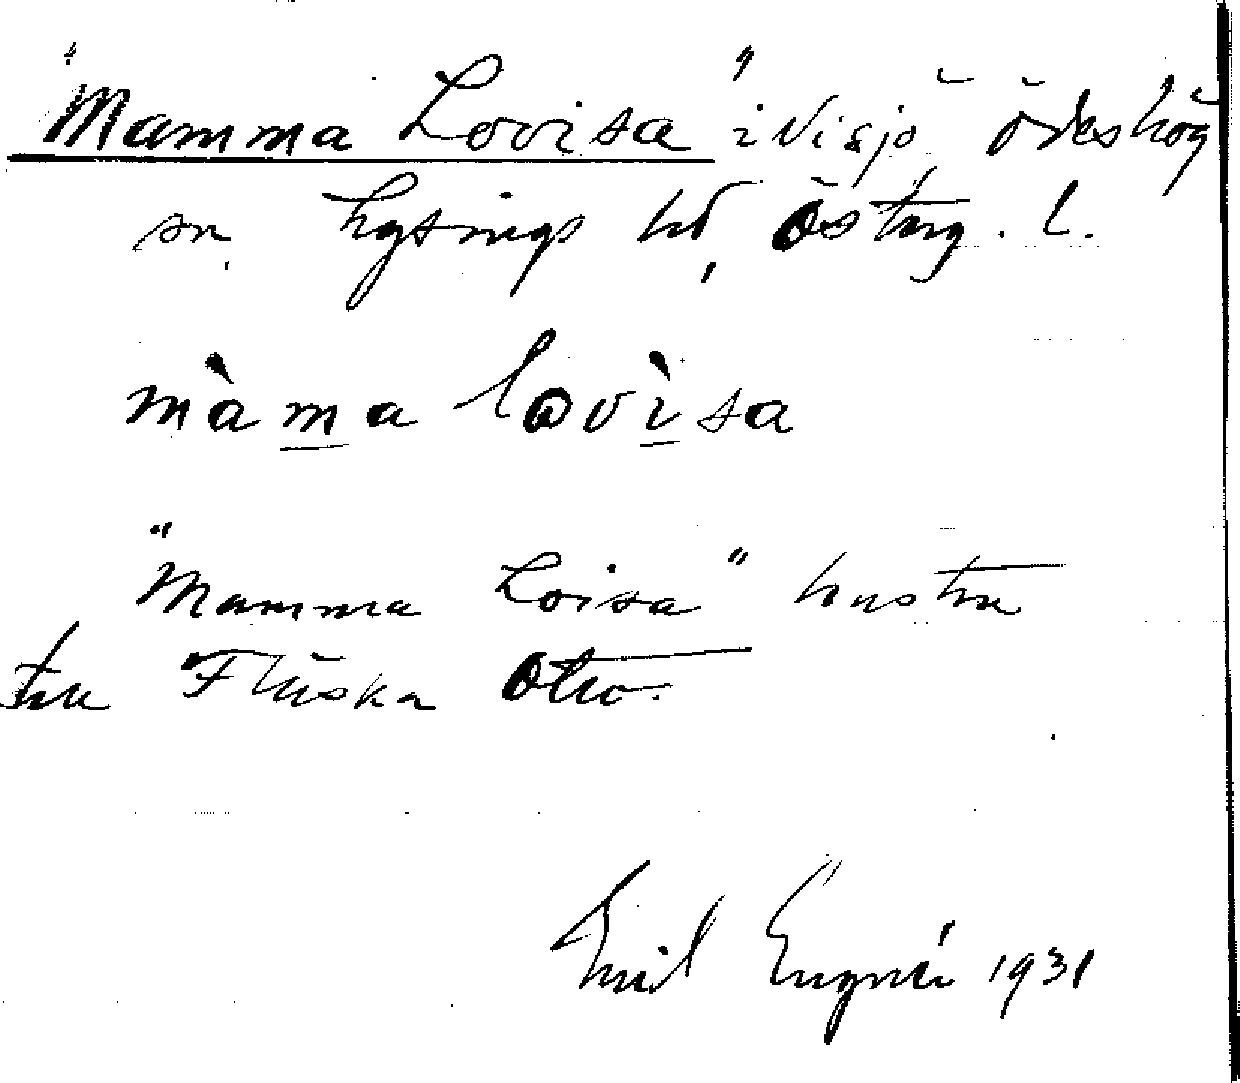 "Mamma Lovisa" i Visjö Ödeshög
sn, Lysings hd, Österg. l.
màma lovìsa
"Mamma Loisa" hustru
t Flüska Otto.
Emil Engnér 1931